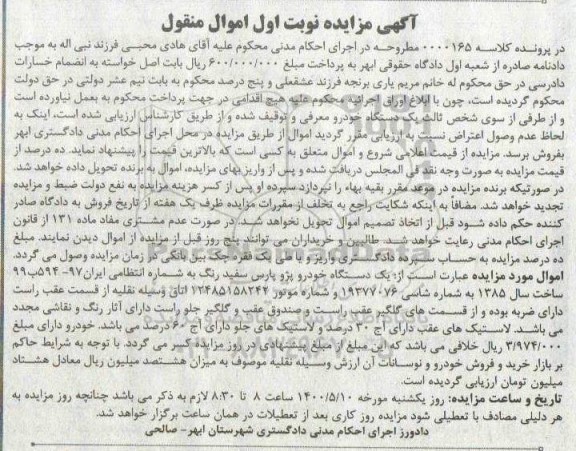 آگهی مزایده نوبت اول اموال منقول
در پرونده کلاسه ۰۰۰۰۱۶۵ مطروحه در اجرای احکام مدنی محکوم علیه آقای هادی محبـی فرزند نبی اله به موجب
دادنامه صادره از شعبه اول دادگاه حقوقی ابهر به پرداخت مبلغ ۶۰۰/۰۰۰/۰۰۰ ریال بابت اصل خواسته به انضمام خسارات
دادرسی در حق محکوم له خانم مریم یاری برنجه فرزند عشقعلی و پنج درصد محکوم به بابت نیم عشر دولتی در حق دولت
محکوم گردیده است، چون با ابلاغ اوراق اجرائیه محکوم علیه هیچ اقدامی در جهت پرداخت محکوم به بعمل نیاورده است
و از طرفی از سوی شخص ثالث یک دستگاه خودرو معرفی و توقیف شده و از طریق کارشناس ارزیابی شده است، اینک به
لحاظ عدم وصول اعتراض نسبت به ارزیابی مقرر گردید اموال از طریق مزایده در محل اجرای احکام مدنی دادگستری ابهر
بفروش برسد. مزایده از قیمت اعلامی شروع و اموال متعلق به کسی است که بالاترین قیمت را پیشنهاد نماید. ده درصد از
قیمت مزایده به صورت وجه نقد فی المجلس دریافت شده و پس از واریز بهای مزایده، اموال به برنده تحویل داده خواهد شد.
در صورتیکه برنده مزایده در موعد مقرر بقیه بهاء را نپردازد سپرده او پس از کسر هزینه مزایده به نفع دولت ضبط و مزایده
تجدید خواهد شد. مضافاً به اینکه شکایت راجع به تخلف از مقررات مزایده ظرف یک هفته از تاریخ فروش به دادگاه صادر
کننده حکم داده شود قبل از اتخاذ تصمیم اموال تحویل نخواهد شد. در صورت عدم مشتری مفاد ماده ۱۳۱ از قانون
اجرای احکام مدنی رعایت خواهد شـد. طالبین و خریداران می توانند پنج روز قبل از مزایده از اموال دیدن نمایند. مبلغ
ده درصد مزایده به حساب سپرده دادگستری واریز و یا طی یک فقره چک بین بانکی در زمان مزایده وصول می گردد.
اموال مورد مزایده عبارت است از: یک دستگاه خودرو پژو پارس سفید رنگ به شماره انتظامی ایران۹۷- ۵۹۴ب۹۹
ساخت سال ۱۳۸۵ به شماره شاسی ۱۹۳۷۷۰۷۶ و شماره موتور ۱۲۴۸۵۱۵۸۲۴۷ اتاق وسیله نقلیه از قسمت عقب راست
دارای ضربه بوده و از قسمت های گلگیر عقب راسـت و صندوق عقب و گلگیر جلو راست دارای آثار رنگ و نقاشی مجدد
می باشد. لاستیک های عقب دارای آج ۳۰ درصد و لاستیک های جلو دارای آج ۶۰ درصد می باشد. خودرو دارای مبلغ
۳/۹۷۴/۰۰۰ ریال خلافی می باشد که این مبلغ از مبلغ پیشنهادی در روز مزایده کسر می گردد. با توجه به شرایط حاکم
بر بازار خرید و فروش خودرو و نوسانات آن ارزش وسیله نقلیه موصوف به میزان هشتصد میلیون ریال معادل هشتاد
میلیون تومان ارزیابی گردیده است.
تاریخ و ساعت مزایده: روز یکشنبه مورخه ۱۴۰۰/۵/۱۰ ساعت ۸ تا ۸:۳۰ لازم به ذکر می باشد چنانچه روز مزایده به
هر دلیلی مصادف با تعطیلی شود مزایده روز کاری بعد از تعطیلات در همان ساعت برگزار خواهد شد.
دادورز اجرای احکام مدنی دادگستری شهرستان ابهر- صالحی